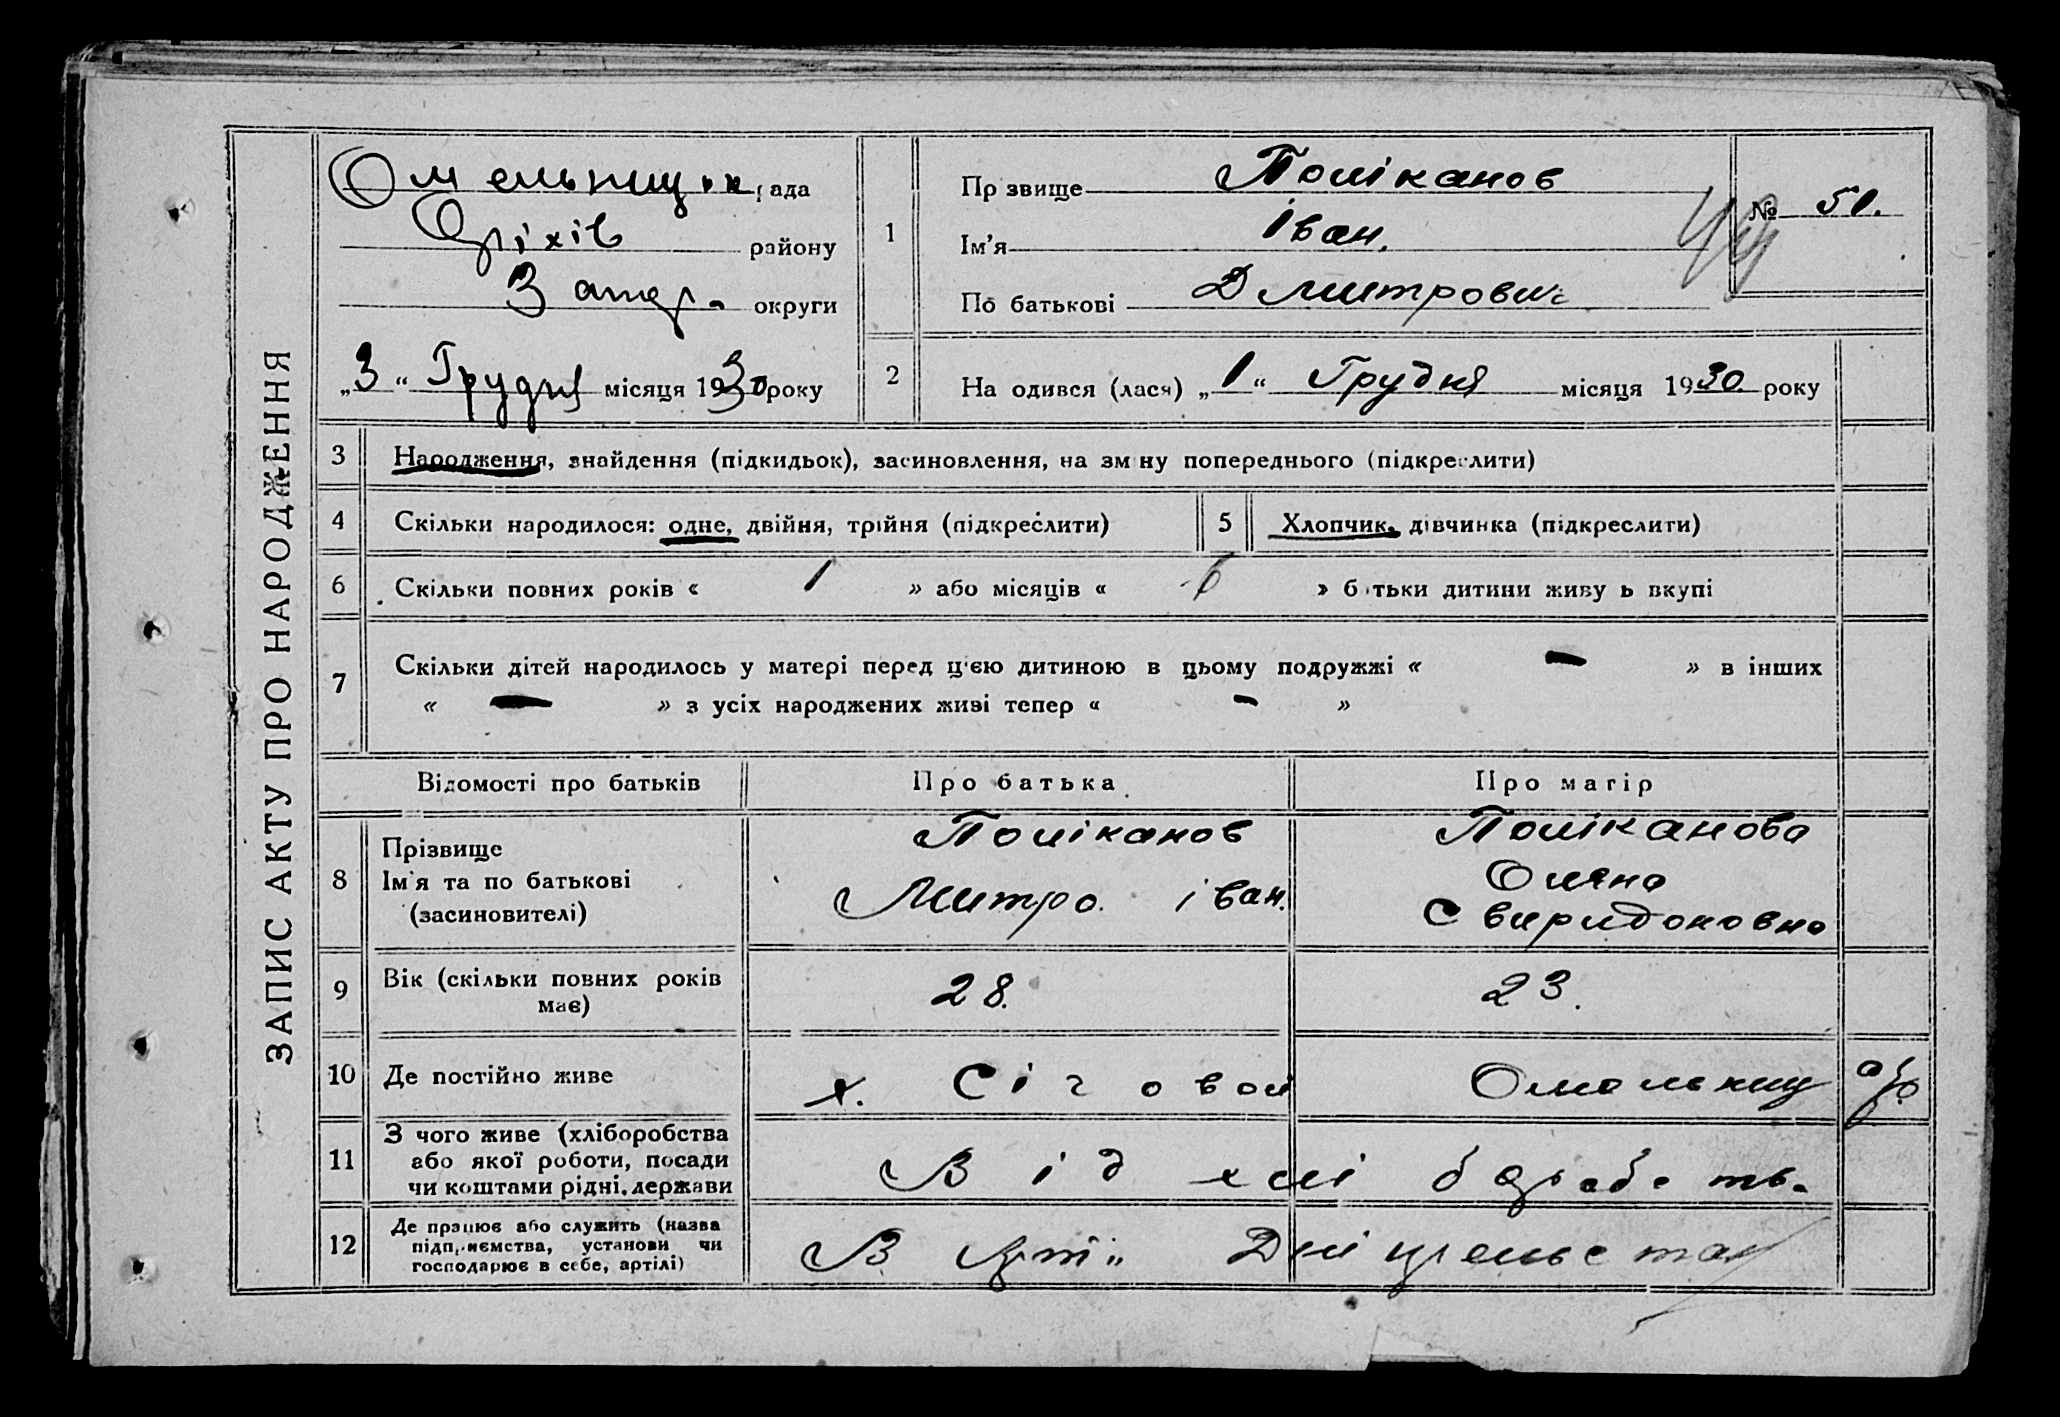 ЗАПИС АКТУ ПРО НАРОДЖЕННЯ
Омельницьк рада
Оріхів району
Запор. округи
„3“ Грудня місяця 1930 року
1
Прізвище Поліканов
Ім'я Іван.
По батькові Дмитрович
№ 51.
2
На одився (лася) „1“ Грудня місяця 1930 року
3 Народження, знайдення (підкидьок), засиновлення, на зміну попереднього (підкреслити)
4 Скільки народилося: одне, двійня, трійня (підкреслити)
5 Хлопчик, дівчинка (підкреслити)
6 Скільки повних років « 1 » або місяців « 6 » батьки дитини живуть вкупі
7 Скільки дітей народилось у матері перед цією дитиною в цьому подружжі « — » в інших
« — » з усіх народжених живі тепер « - »
Відомості про батьків Про батька Про матір
8 Прізвище
Ім'я та по батькові
(засиновителі)
Поліканов
Митро. іван.
Поліканова
Оляна
Свиридоновна
9 Вік (скільки повних років
має)
28. 23.
10 Де постійно живе х. Січовой Омельниц
11 З чого живе (хліборобства
або якої роботи, посади
чи коштами рідні, держави
Від хліборобств.
12 Де працює або служить (назва
підприємства, установи чи
господарює в себе, артілі)
В Арті